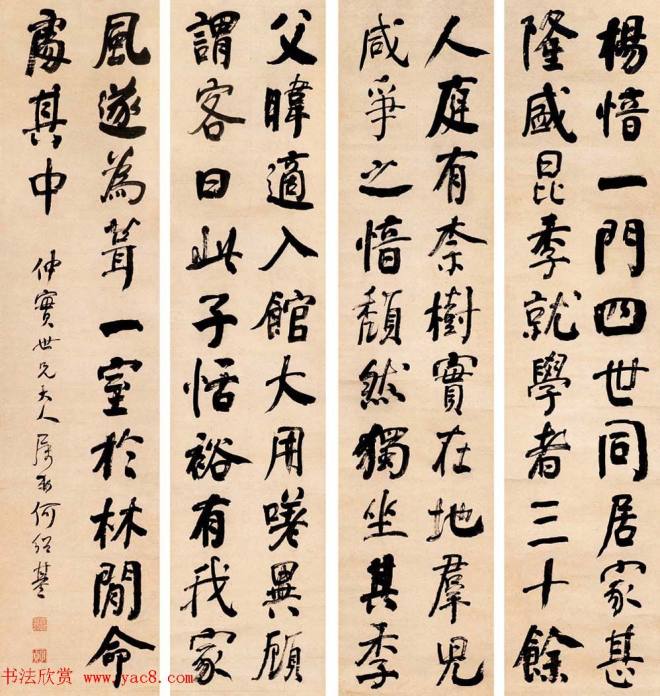 楊愔一門四世同居家甚
隆盛昆季就學者三十餘
人庭有柰樹實在地羣児
咸爭之愔頽然獨坐其季
父暐適入館大用嗟異顧
謂客曰此子恬裕有我家
風遂為葺一室於林閒命
處其中
仲實世兄大人屬 何紹基
书法欣赏 www.yac8.com